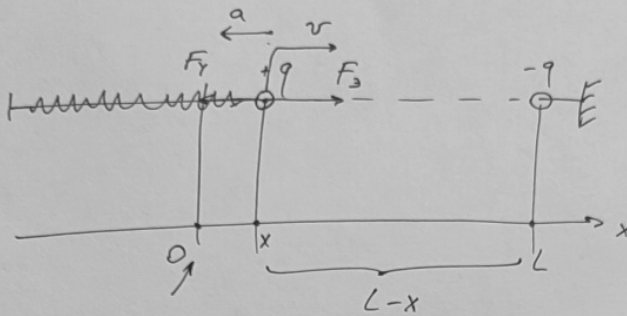 a
v
Fу
+q
Fэ
-q
O
x
L
x
L-x